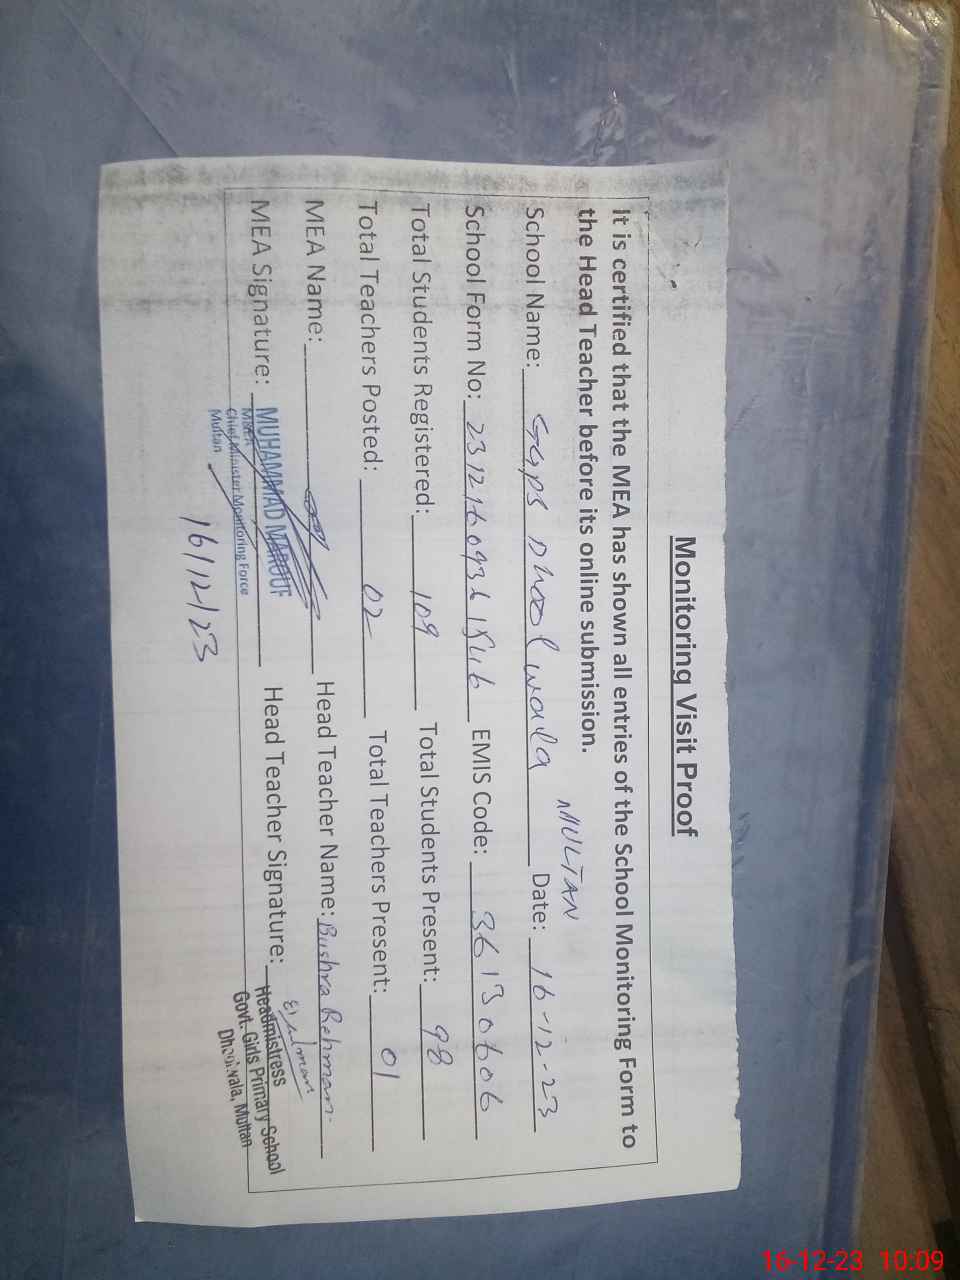 Monitoring Visit Proof
It is certified that the MEA has shown all entries of the School Monitoring Form to
the Head Teacher before its online submission.
MULTAN
School Name: GGPS Dhool wala Date: 16-12-23
School Form No: EMIS Code: 36130606
Total Students Registered: 109 Total Students Present: 98
Total Teachers Posted: 02 Total Teachers Present: 01
MEA Name: Head Teacher Name: Bushra Rehman
MEA Signature: MUHAMMAD MAROUF Head Teacher Signature:
MEA
Chief Minister Monitoring Force
Multan
Headmistress
Govt. Girls Primary School
Multan
16/12/23
16-12-23 10:09